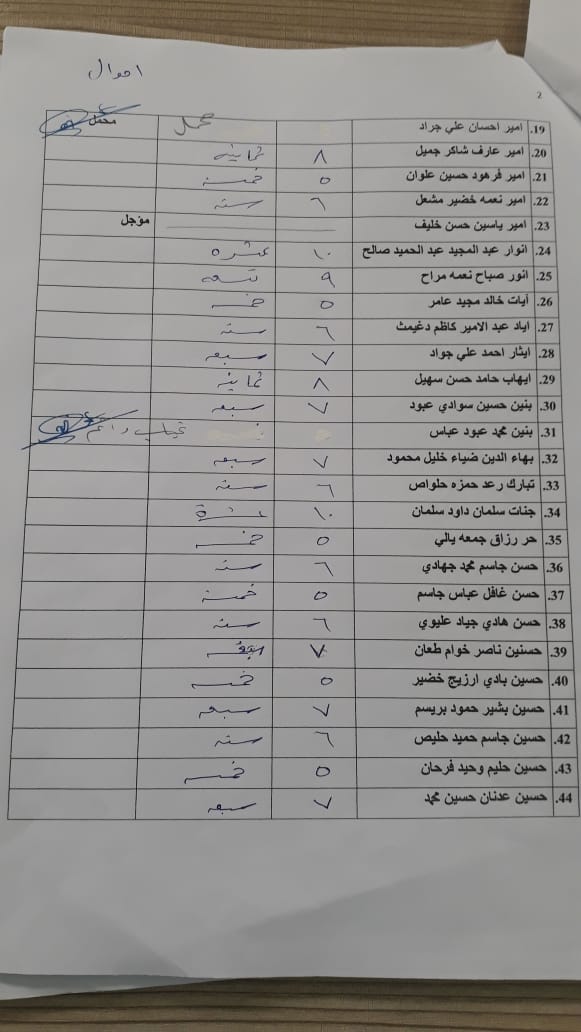 احوال
2
19. امير احسان علي جراد محمل محمل
20. امير عارف شاكر جميل ٨ ثمانية
21. امير فرهود حسين علوان ٥ خمسة
22. امير نعمه خضير مشعل ٦ ستة
23. امير ياسين حسن خليف مؤجل
24. انوار عبد المجيد عبد الحميد صالح ١٠ عشره
25. انور صباح نعمه مراح ٩ تسعه
26. آيات خالد مجيد عامر ٥ خمسه
27. اياد عبد الامير كاظم دغيمث ٦ سته
28. ايثار احمد علي جواد ٧ سبعه
29. ايهاب حامد حسن سهيل ٨ ثمانية
30. بنين حسين سوادي عبود ٧ سبعه
31. بنين محمد عبود عباس غياب
32. بهاء الدين ضياء خليل محمود ٧ سبعه
33. تبارك رعد حمزه حلواص ٦ سته
34. جنات سلمان داود سلمان ١٠ عشرة
35. حر رزاق جمعه يالي ٥ خمسه
36. حسن جاسم محمد جهادي ٦ سته
37. حسن غافل عباس جاسم ٥ خمسة
38. حسن هادي جياد عليوي ٦ سته
39. حسنين ناصر خوام طعان ٧
40. حسين بادي ارزيج خضير ٥ خمسه
41. حسين بشير حمود بريسم ٧ سبعه
42. حسين جاسم حميد حليص ٦ سته
43. حسين حليم وحيد فرحان ٥ خمسه
44. حسين عدنان حسين محمد ٧ سبعه